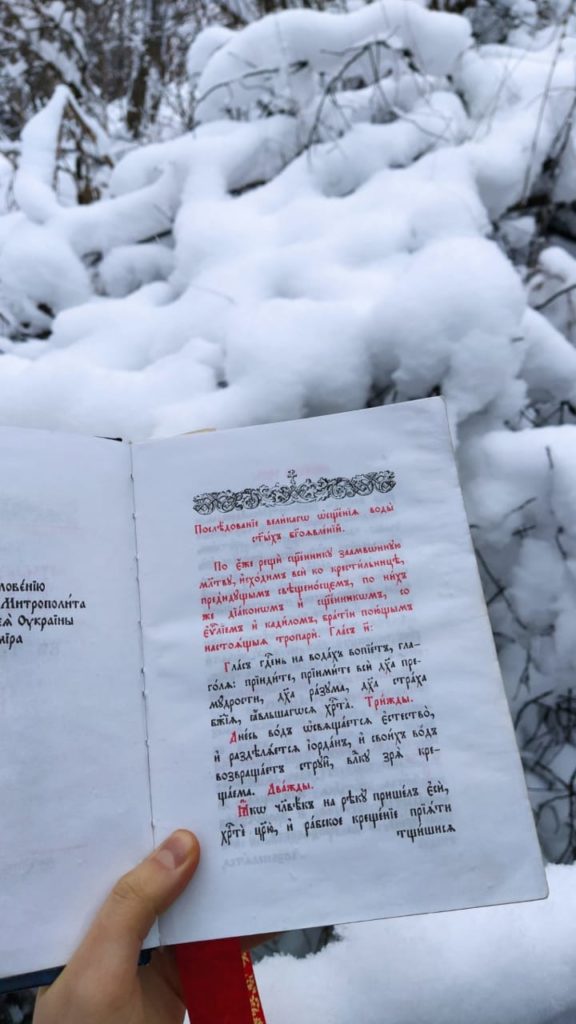 словенїю
Митрополита
ея̀ Оукраины
мїра
Послѣдованїе великагѡ ѡ҆сщ҃енїѧ воды̀
ст҃ы́хъ бг҃оѧвле́нїй.
По є҆́же рещѝ сщ҃е́ннику заамвѡ́нную
мл҃тву, и҆схо́димъ всѝ ко крести́льницѣ,
предъиду́щымъ свѣщено́сцемъ, по ни́хъ
же дїа́кѡнѡмъ и҆ сщ҃е́нникѡмъ, со
є҆ѵⷢ҇лїемъ и҆ кади́ломъ, бра́тїи пою́щымъ
настоѧ́щыѧ тропари̑. Гла́съ и҃:
Гла́съ гдⷭ҇ень на вода́хъ вопїе́тъ, гла-
го́лѧ: прїиди́те, прїими́те всѝ дх҃а пре-
мꙋ́дрости, дх҃а ра́зума, дх҃а стра́ха
бж҃їѧ, ꙗ҆́вльшагѡсѧ хрⷭ҇та̀. Три́жды.
Дне́сь во́дъ ѡ҆свѧща́етсѧ є҆стество̀,
и҆ раздѣлѧ́етсѧ і҆ѻрда́нъ, и҆ свои́хъ во́дъ
возвраща́етъ стрꙋи̑, влⷣку зрѧ̀ кре-
ща́ема. Два́жды.
Ꙗ҆́кѡ чл҃вѣ́къ на рѣ́ку прише́лъ є҆сѝ,
хрⷭ҇тѐ цр҃ю̀, и҆ ра́бское креще́нїе прїѧ́ти
тщи́шисѧ